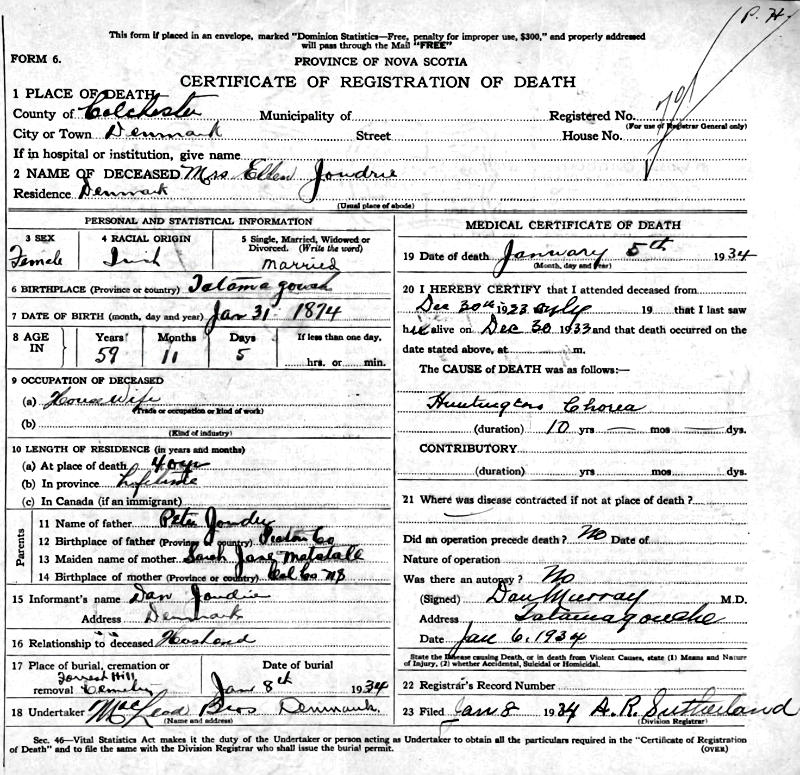 P. H.
This form if placed in an envelope, marked "Dominion Statistics—Free, penalty for improper use, $300," and properly addressed
will pass through the Mail "FREE"
FORM 6.
PROVINCE OF NOVA SCOTIA
CERTIFICATE OF REGISTRATION OF DEATH
1 PLACE OF DEATH
County of Colchester Municipality of Registered No.
(For use of Registrar General only)
City or Town Denmark Street House No.
If in hospital or institution, give name
2 NAME OF DECEASED Mrs Ellen Joudrie
Residence Denmark
(Usual place of abode)
PERSONAL AND STATISTICAL INFORMATION
3 SEX 4 RACIAL ORIGIN 5 Single, Married, Widowed or
Divorced. (Write the word)
Female Irish Married
6 BIRTHPLACE (Province or country) Tatamagouch
7 DATE OF BIRTH (month, day and year) Jan 31 1874
8 AGE IN Years Months Days If less than one day,
59 11 5 hrs. or min.
9 OCCUPATION OF DECEASED
(a) House Wife
(Trade or occupation or kind of work)
(b)
(Kind of industry)
10 LENGTH OF RESIDENCE (in years and months)
(a) At place of death 40 yr
(b) In province Lifetime
(c) In Canada (if an immigrant)
Parents
11 Name of father Peter Joudry
12 Birthplace of father (Province or country) Pictou Co
13 Maiden name of mother Sarah Jane Matatall
14 Birthplace of mother (Province or country) Col Co NS
15 Informant's name Dan Joudrie
Address Denmark
16 Relationship to deceased Husband
17 Place of burial, cremation or Date of burial
Forrest Hill
removal Cemetery Jan 8th 1934
18 Undertaker MacLead Bros Denmark
(Name and address)
MEDICAL CERTIFICATE OF DEATH
19 Date of death January 5th 1934
(Month, day and year)
20 I HEREBY CERTIFY that I attended deceased from
Dec 30th 1933 only 19 that I last saw
her alive on Dec 30 1933 and that death occurred on the
date stated above, at m.
The CAUSE of DEATH was as follows:—
Huntingtons Chorea
(duration) 10 yrs — mos — dys.
CONTRIBUTORY
(duration) yrs. mos. dys.
21 Where was disease contracted if not at place of death?
Did an operation precede death? No Date of
Nature of operation
Was there an autopsy? No
(Signed) Dan Murray M.D.
Address Tatamagouche
Date Jan 6, 1934
State the Disease causing Death, or in death from Violent Causes, state (1) Means and Nature
of Injury, (2) whether Accidental, Suicidal or Homicidal.
22 Registrar's Record Number
23 Filed Jan 8 1934 A. R. Sutherland
(Division Registrar)
Sec. 46—Vital Statistics Act makes it the duty of the Undertaker or person acting as Undertaker to obtain all the particulars required in the "Certificate of Registration
of Death" and to file the same with the Division Registrar who shall issue the burial permit.
(OVER)